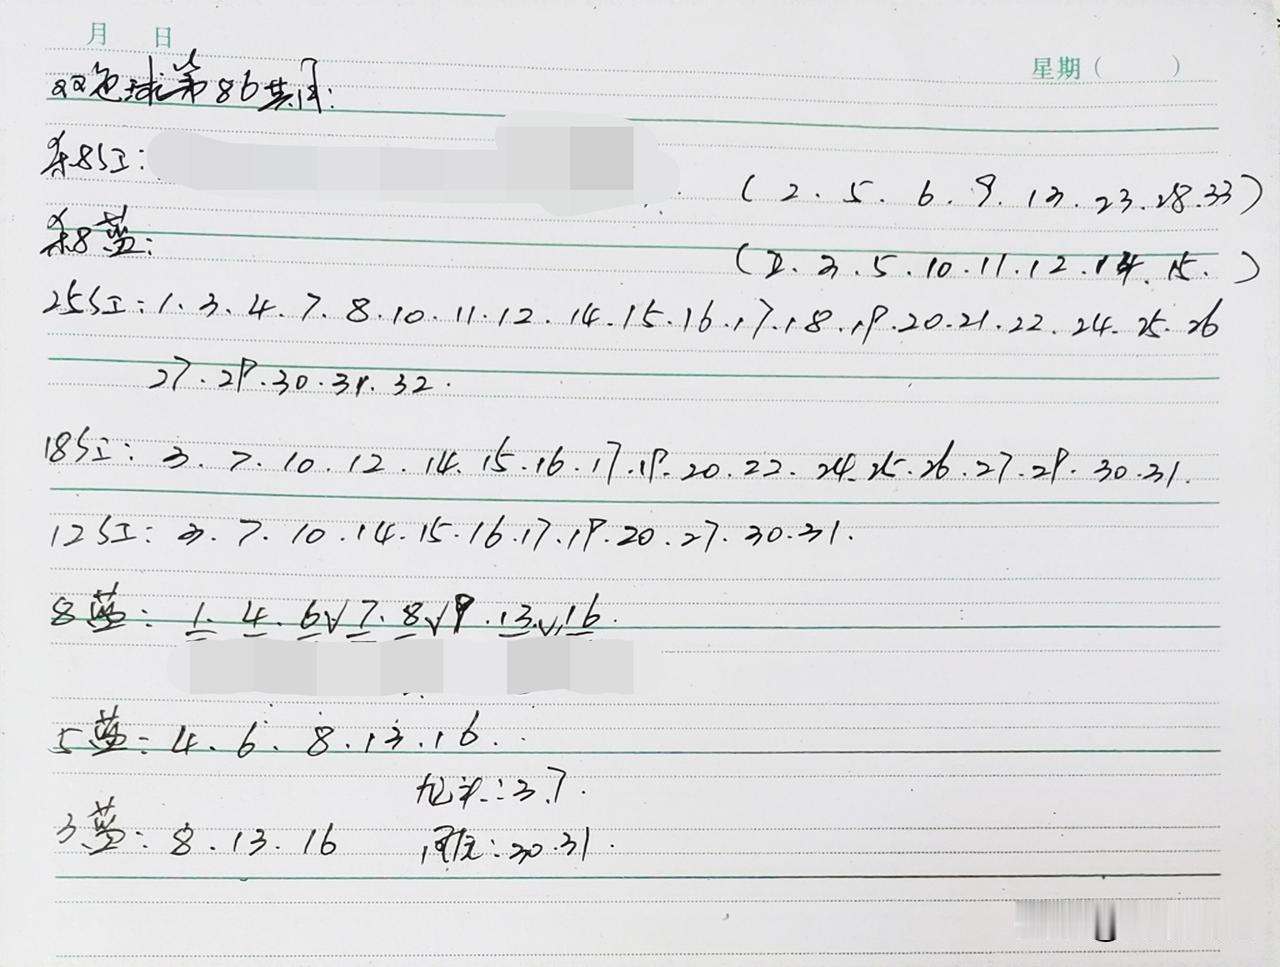 月 日
星期（ ）
双色球第86期：
杀8红： （2．5．6．9．13．23．28．33）
杀8蓝： （2．3．5．10．11．12．14．15．）
25红：1．3．4．7．8．10．11．12．14．15．16．17．18．19．20．21．22．24．25．26
27．29．30．31．32．
18红：3．7．10．12．14．15．16．17．19．20．22．24．25．26．27．29．30．31．
12红：3．7．10．14．15．16．17．19．20．27．30．31．
8蓝：1．4．6√7．8√9．13．√16．
5蓝：4．6．8．13．16．
龙头：3．7．
3蓝：8．13．16 凤尾：30．31．